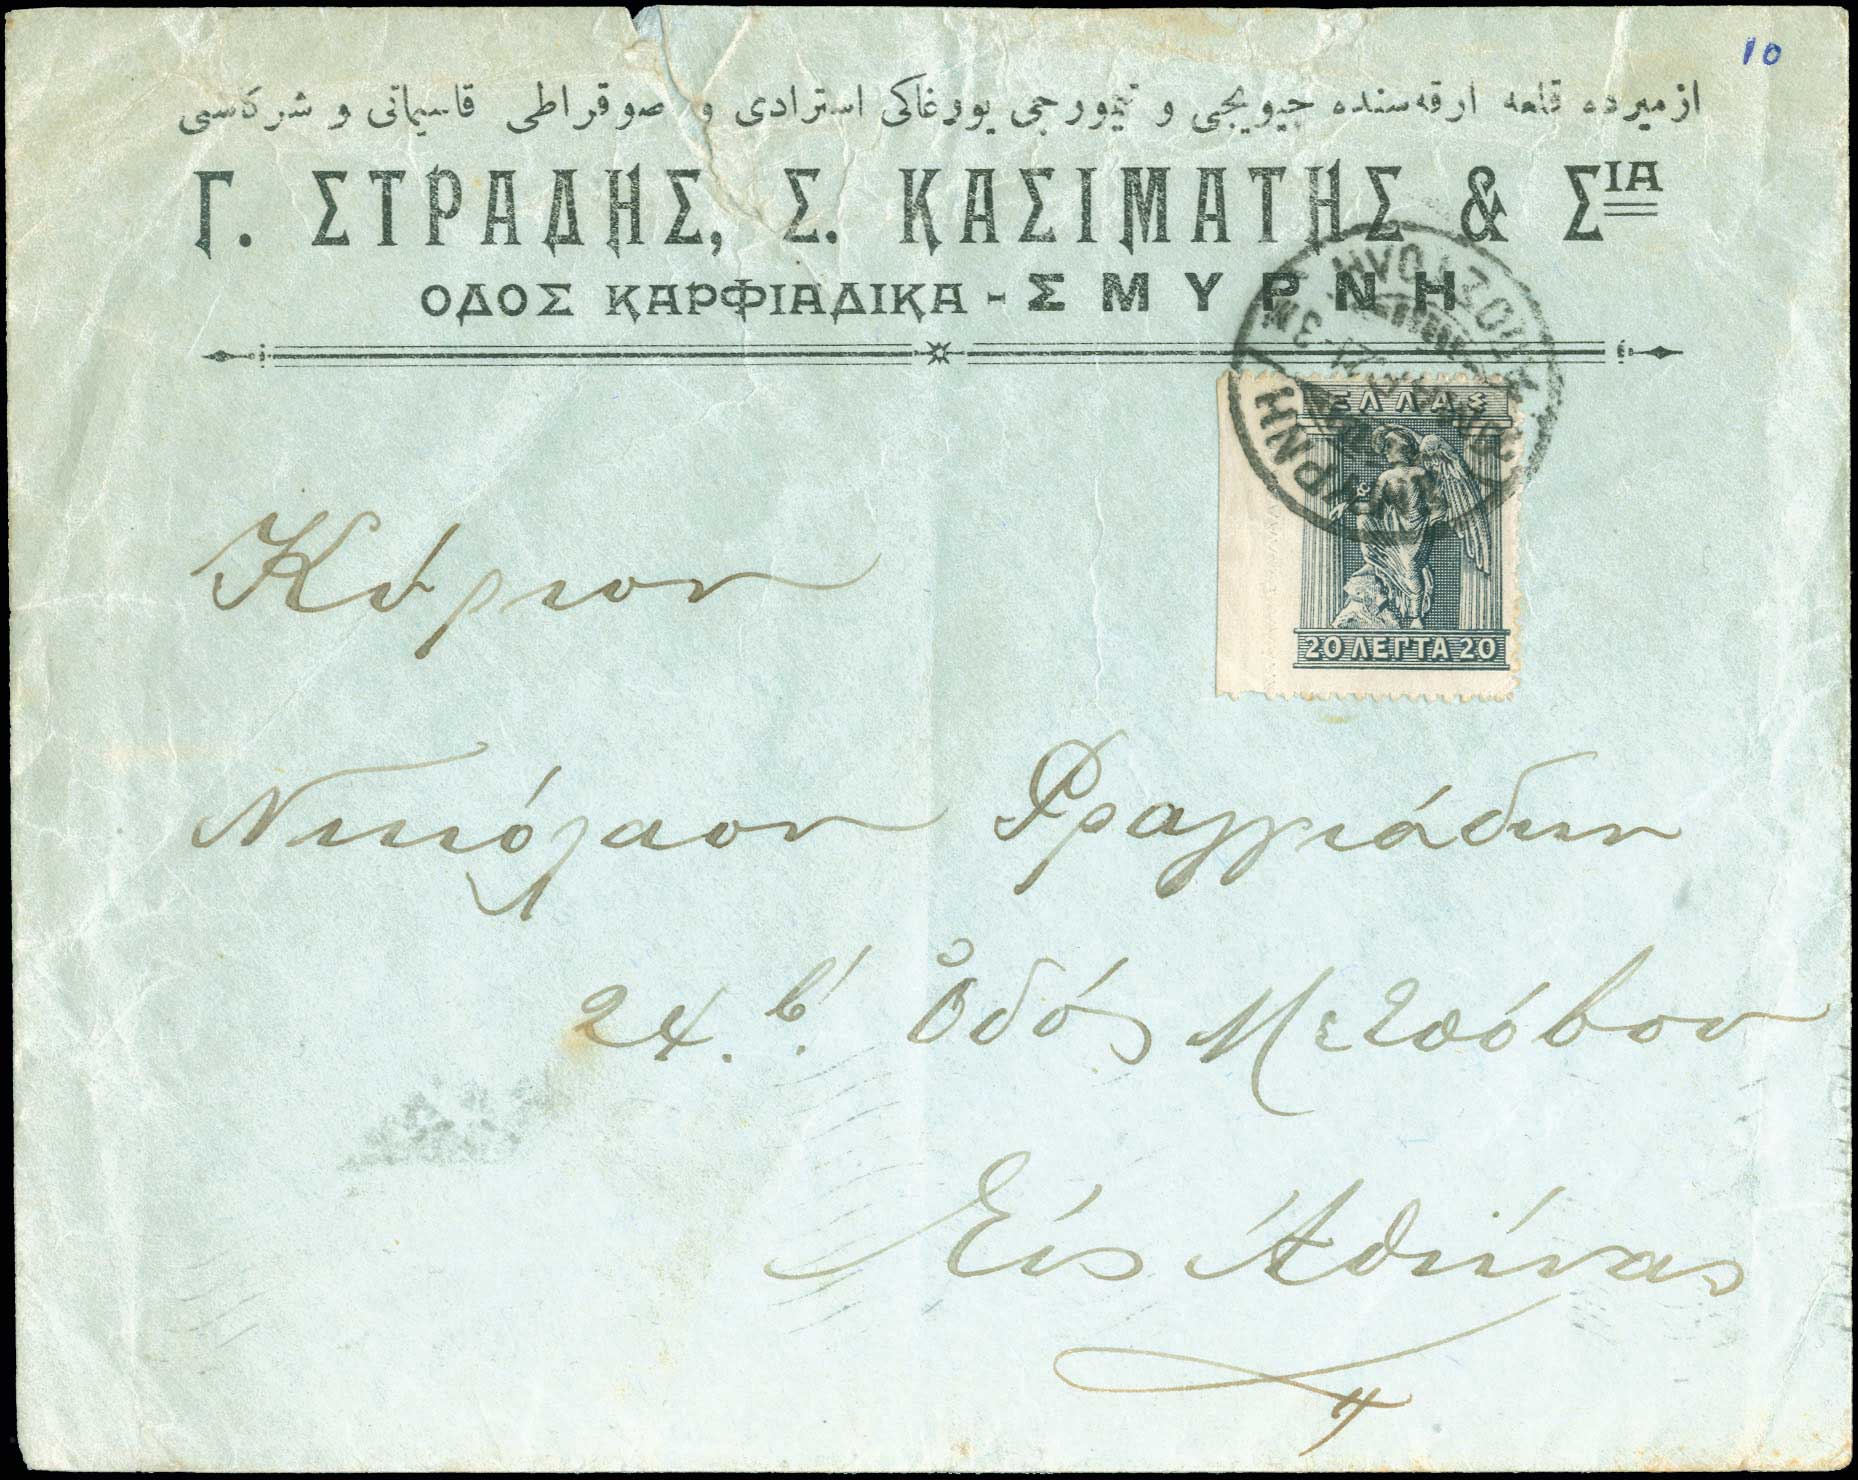 10
ازميرده قلعه ارقه‌سنده چيويجى و تيمورجى يورغاكى استرادى و صوقراطى قاسيماتى و شركاسى
Γ. ΣΤΡΑΔΗΣ, Σ. ΚΑΣΙΜΑΤΗΣ & ΣΙΑ
ΟΔΟΣ ΚΑΡΦΙΑΔΙΚΑ - ΣΜΥΡΝΗ
ΣΜΥΡΝΗ
ΕΛΛΑΣ
20 ΛΕΠΤΑ 20
Κύριον
Νικόλαον Φραγγιάδην
24. β! Ὁδός Μετσόβου
Εἰς Ἀθήνας